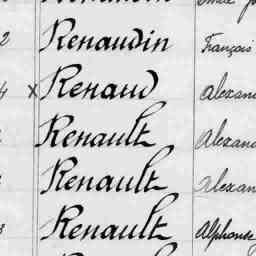 2 Renaudin François
4 x Renaud Alexan
Renault Alexan
Renault Alexan
Renault Alphonse